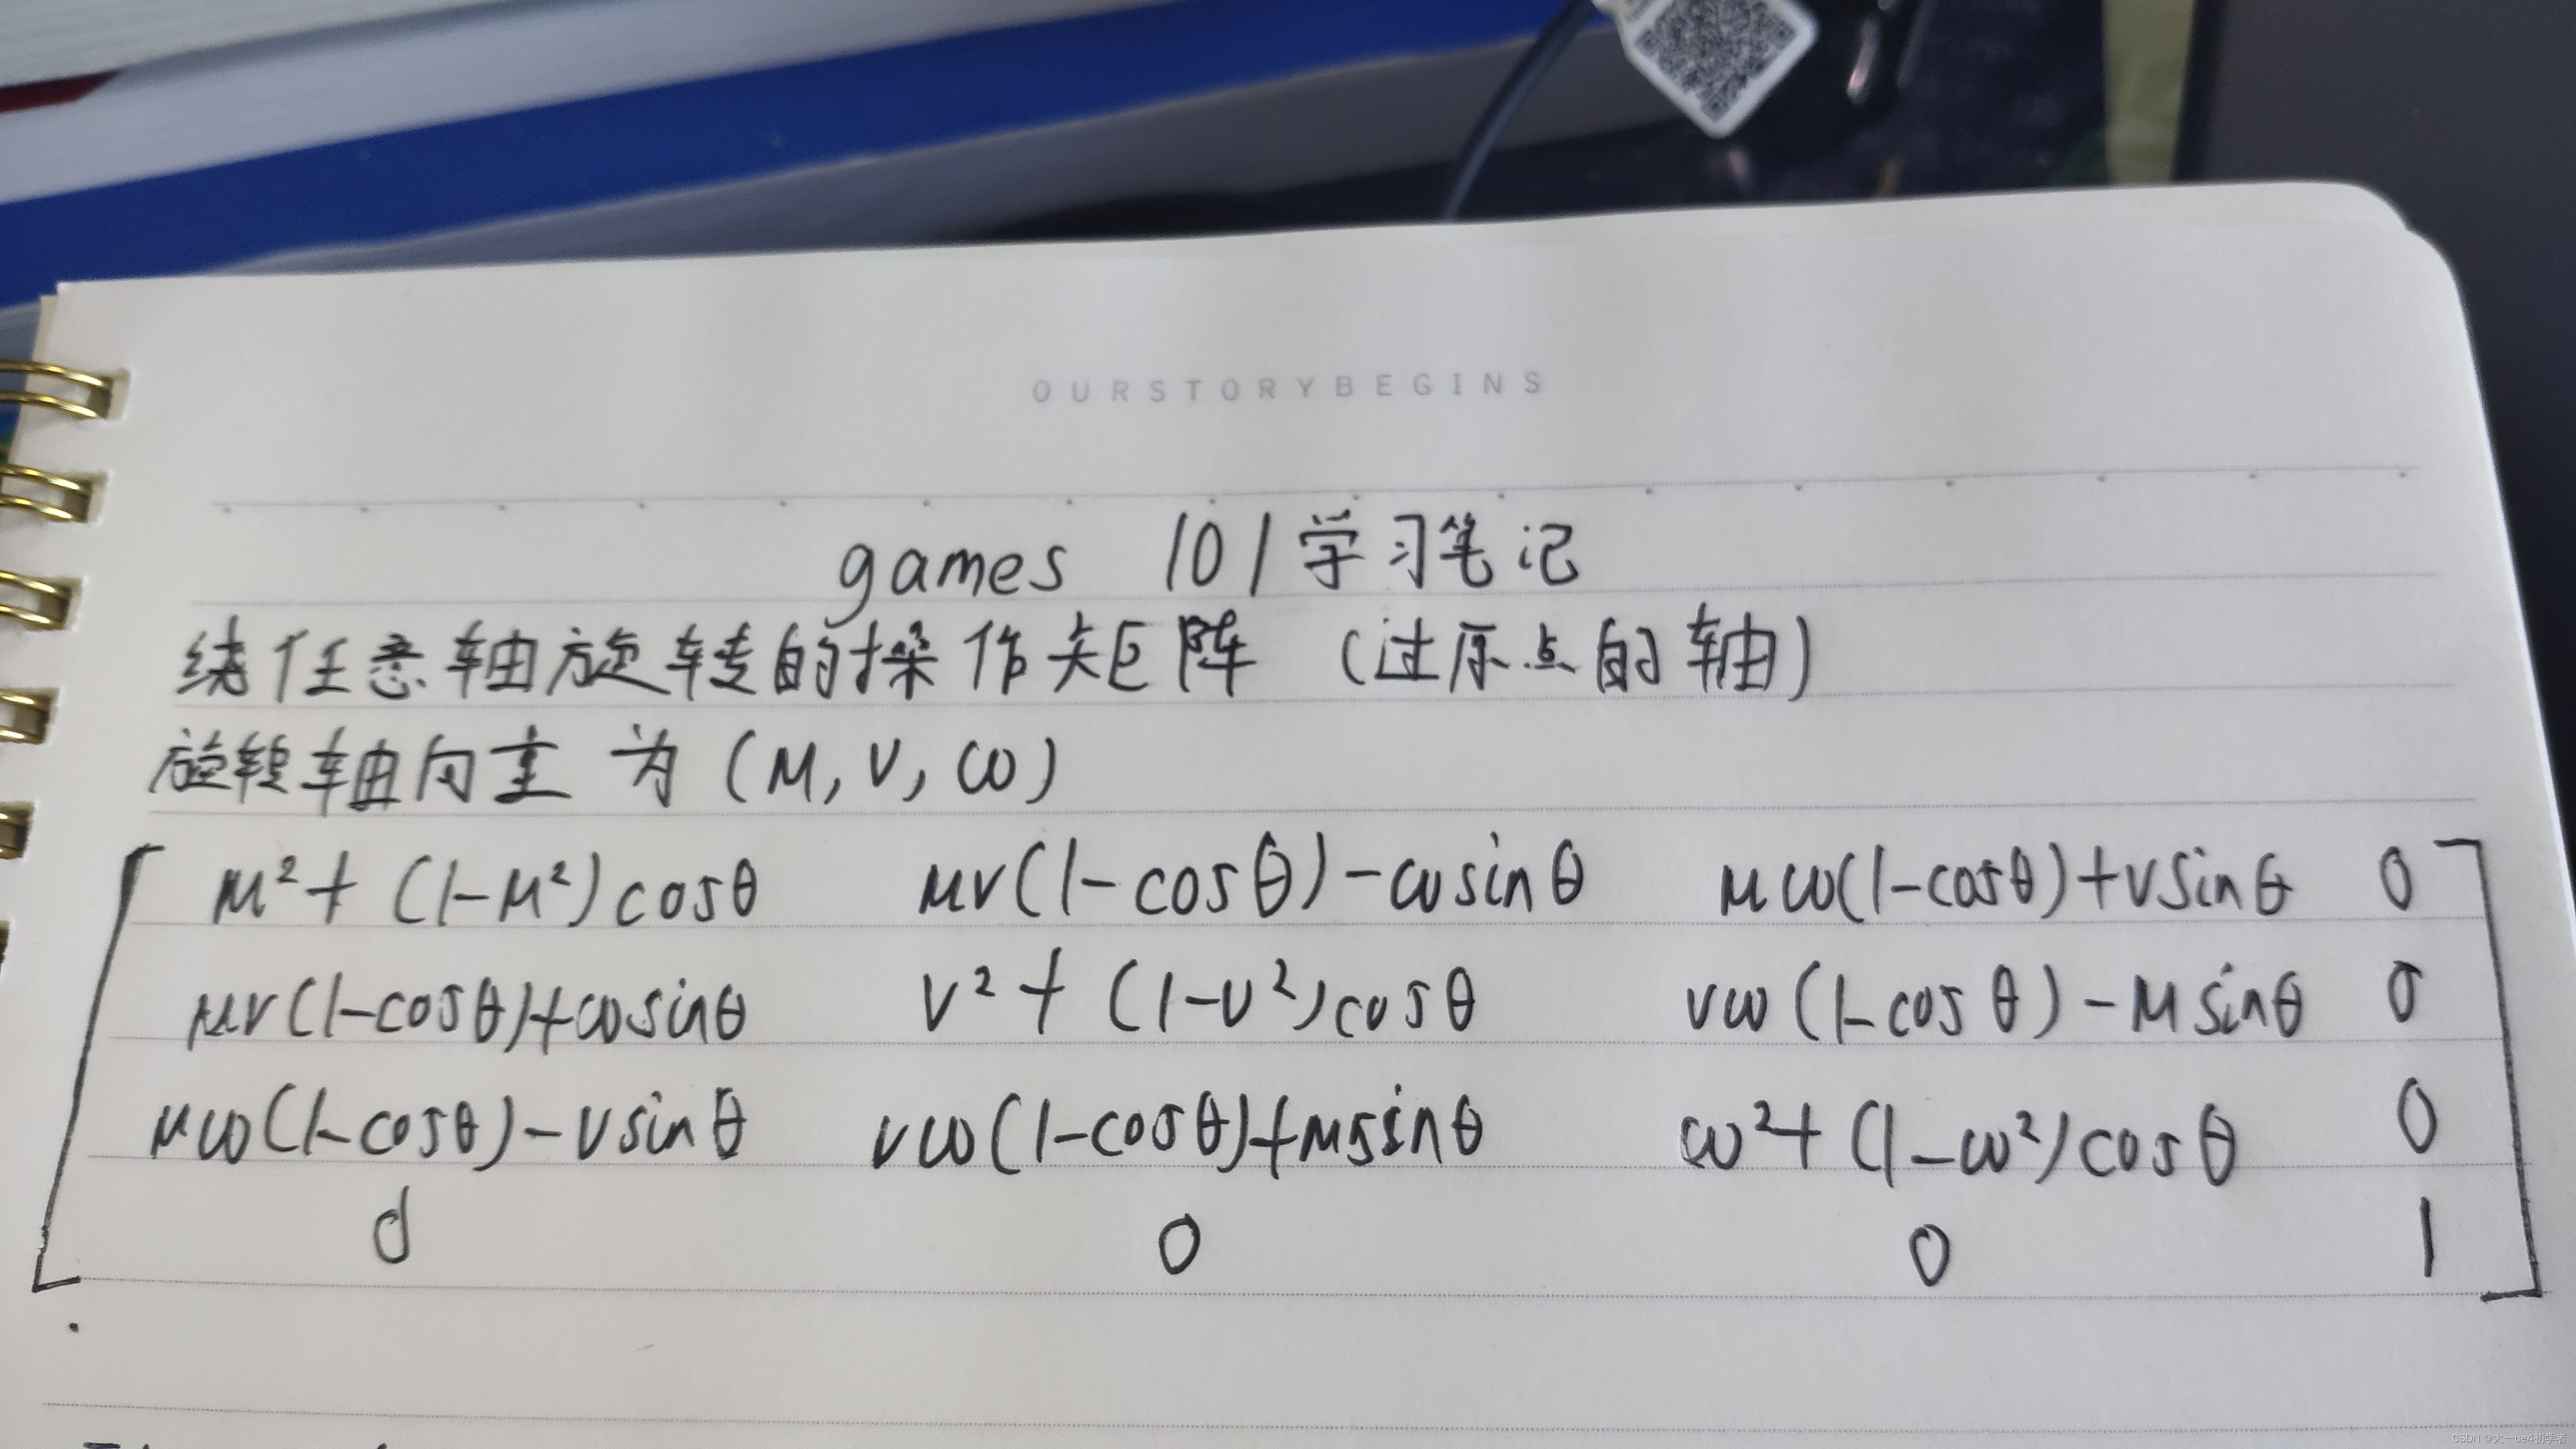 OURSTORYBEGINS
games 101学习笔记
绕任意轴旋转的操作矩阵 (过原点的轴)
旋转轴向量 为 (μ, v, ω)
μ²+ (1-μ²)cosθ μv(1-cosθ)-ωsinθ μω(1-cosθ)+vsinθ 0
μv(1-cosθ)+ωsinθ v²+ (1-v²)cosθ vω(1-cosθ)-μsinθ 0
μω(1-cosθ)-vsinθ vω(1-cosθ)+μsinθ ω²+ (1-ω²)cosθ 0
0 0 0 1
CSDN @大一ue4初学者